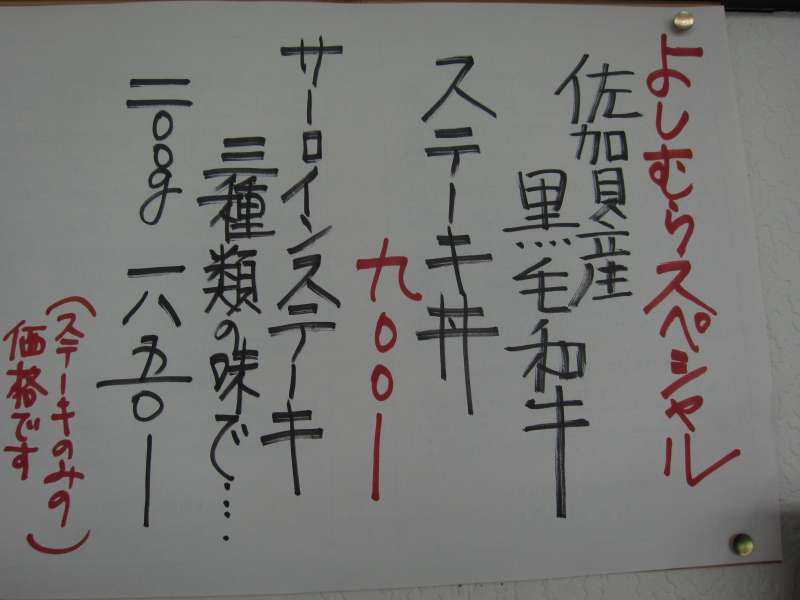 よしむらスペシャル
佐賀産
黒毛和牛
ステーキ丼
九〇〇ー
サーロインステーキ
三種類の味で・・・・
二〇〇g 一八五〇ー
(ステーキのみの
価格です)